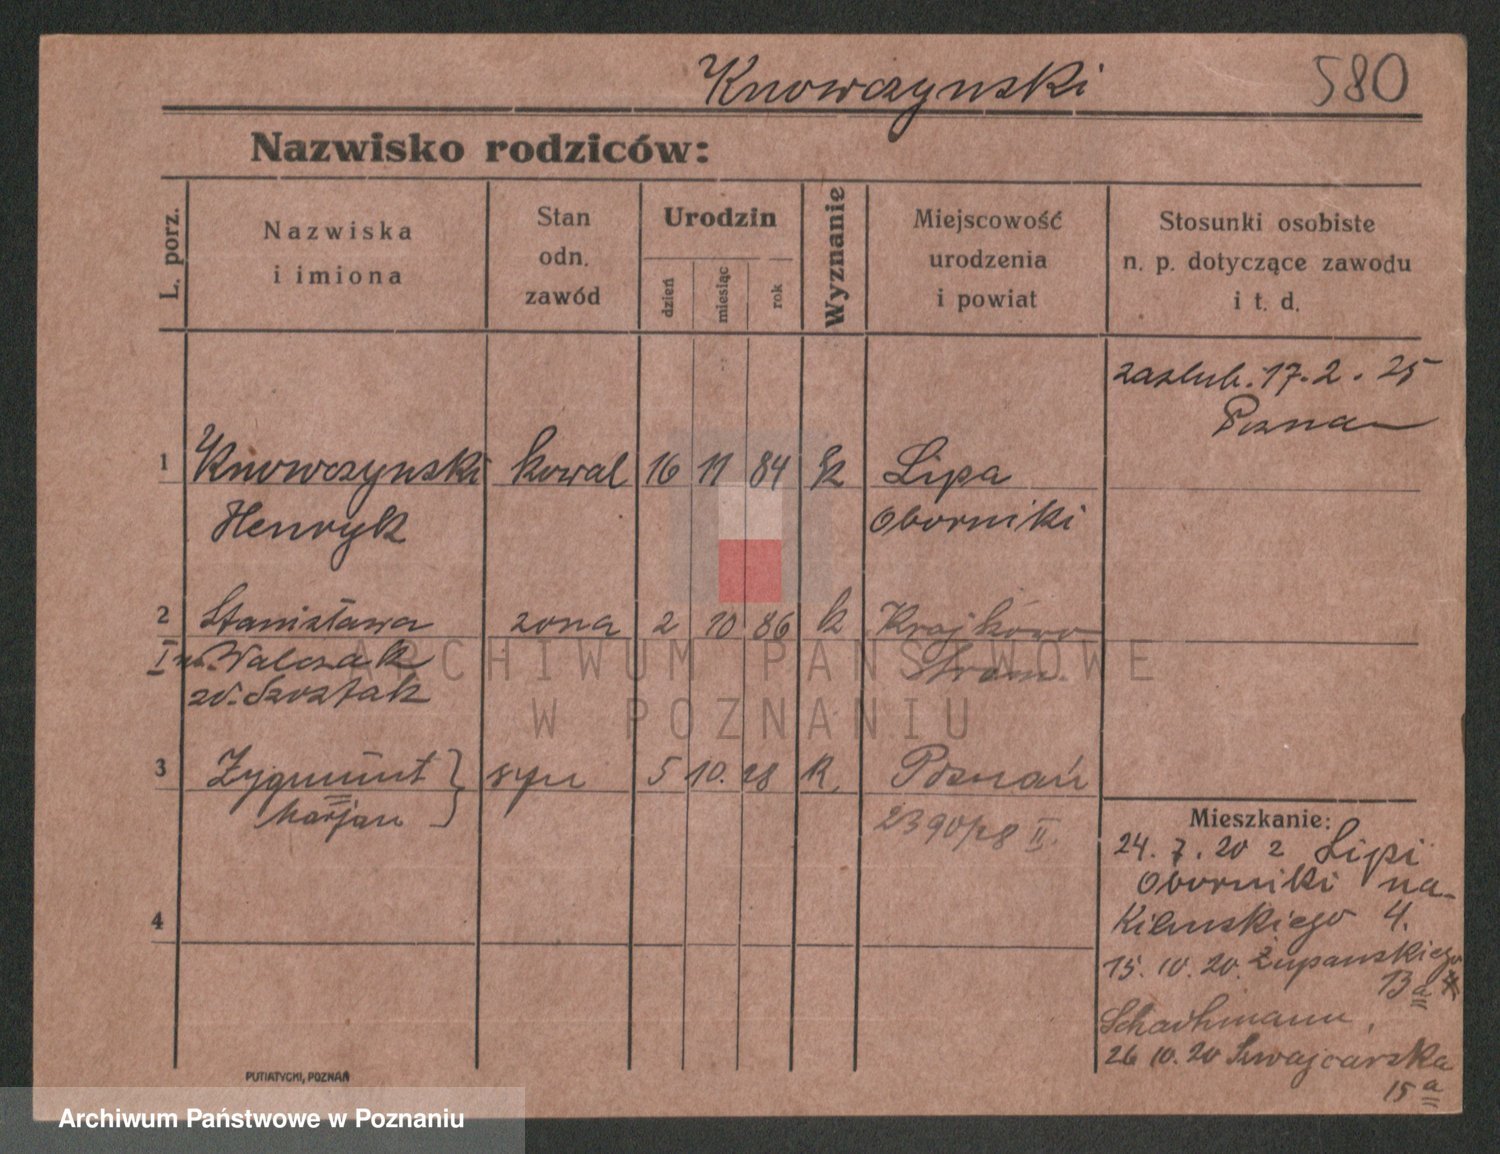 Knowczynski 580
Nazwisko rodziców:
L. porz.
Nazwiska
i imiona
Stan
odn.
zawód
Urodzin
dzień
miesiąc
rok
Wyznanie
Miejscowość
urodzenia
i powiat
Stosunki osobiste
n. p. dotyczące zawodu
i t. d.
zaslub. 17.2.25
Poznan
1 Knowczynski kowal 16 11 84 k Lipa
Henryk Oborniki
2 Stanisława zona 2 10 86 k Krajkowo
I Walczak
Szostak
3 Zygmunt } syn 5 10. 28 k Poznań
Marjan 2390/28 II.
Mieszkanie:
24. 7. 20 z Lipi
Oborniki na
Kilenskiego 4.
4
15. 10. 20. Żupanskiego
13 a
26 10. 20 Szwajcarska
15 a
PUTIATYCKI, POZNAŃ
ARCHIWUM PAŃSTWOWE
W POZNANIU
Archiwum Państwowe w Poznaniu